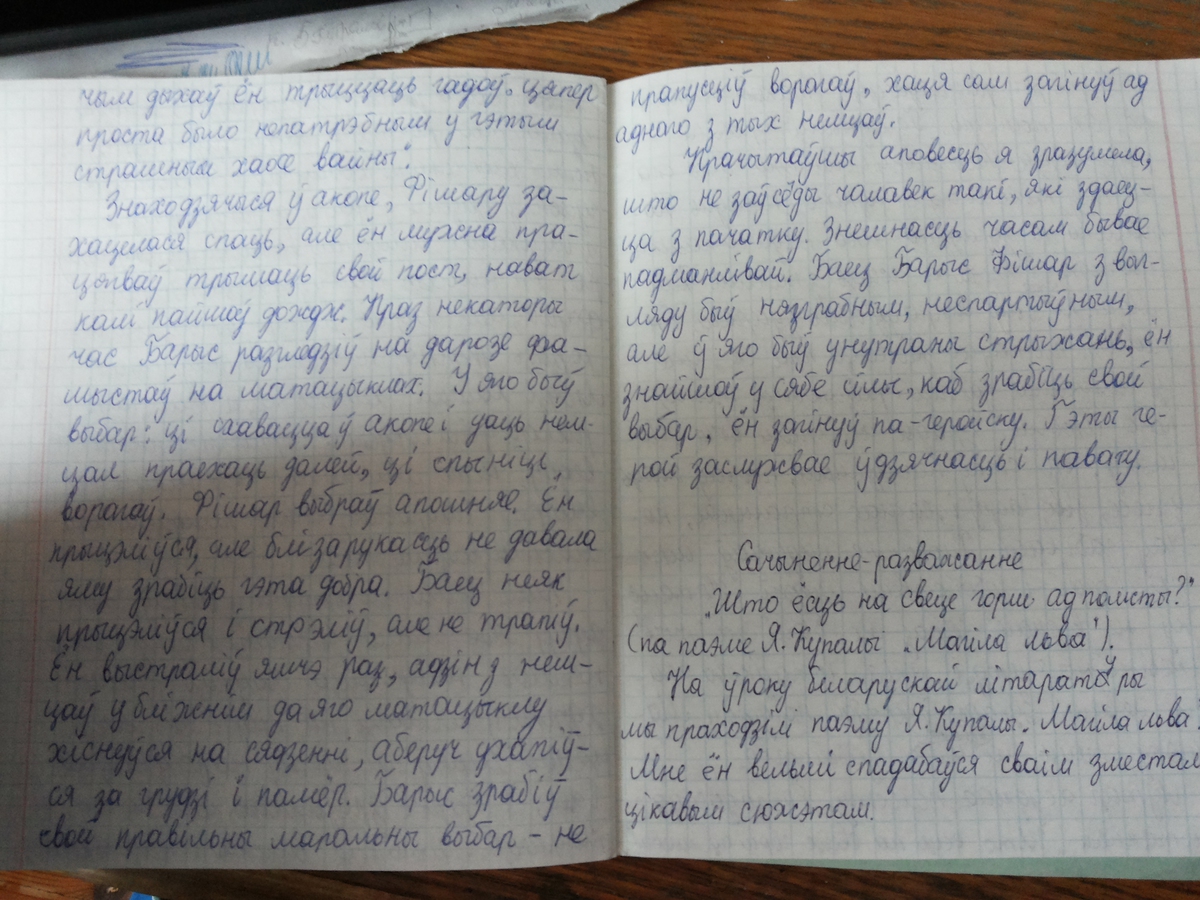 чым дыхаў ён трыццаць гадоў, цяпер
проста было непатрэбным у гэтым
страшным хаосе вайны".
Знаходзячыся ў акопе, Фішару за-
хацелася спаць, але ён мужна пра-
цягваў трымаць свой пост, нават
калі пайшоў дождж. Праз некаторы
час Барыс разгледзіў на дарозе фа-
шыстаў на матацыклах. У яго быў
выбар: ці схавацца ў акопе і даць нем-
цам праехаць далей, ці спыніць
ворагаў. Фішар выбраў апошняе. Ён
прыцэліўся, але блізарукасць не давала
яму зрабіць гэта добра. Баец неяк
прыцэліўся і стрэліў, але не трапіў.
Ён выстраліў яшчэ раз, адзін з нем-
цаў у бліжэйшым да яго матацыклу
хіснуўся на сядзенні, аберуч ухапіў-
ся за грудзі і памёр. Барыс зрабіў
свой правільны маральны выбар – не
прапусціў ворагаў, хаця сам загінуў ад
аднаго з тых немцаў.
Прачытаўшы аповесць я зразумела,
што не заўсёды чалавек такі, які здаец-
ца з пачатку. Знешнасць часам бывае
падманлівай. Баец Барыс Фішар з выг-
ляду быў нязграбным, неспартыўным,
але ў яго быў унутраны стрыжань, ён
знайшоў у сябе сілы, каб зрабіць свой
выбар, ён загінуў па-геройску. Гэты ге-
рой заслужвае ўдзячнасць і павагу.
Сачыненне-разважанне
"Што ёсць на свеце горш ад помсты?"
(па паэме Я. Купалы "Магіла льва").
На ўроку беларускай літаратуры
мы праходзілі паэму Я. Купалы "Магіла льва".
Мне ён вельмі спадабаўся сваім зместам
цікавым сюжэтам.